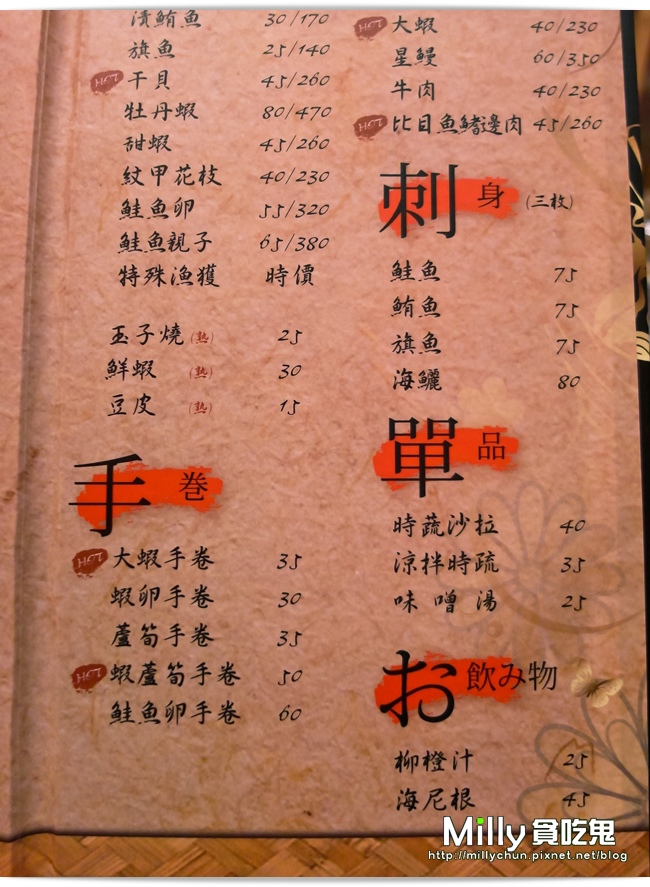 漬鮪魚 30/170
旗魚 25/140
HOT 干貝 45/260
牡丹蝦 80/470
甜蝦 45/260
紋甲花枝 40/230
鮭魚卵 55/320
鮭魚親子 65/380
特殊漁獲 時價
玉子燒 (熟) 25
鮮蝦 (熟) 30
豆皮 (熟) 15
手巻
HOT 大蝦手卷 35
蝦卵手卷 30
蘆筍手卷 35
HOT 蝦蘆筍手卷 50
鮭魚卵手卷 60
HOT 大蝦 40/230
星鰻 60/350
牛肉 40/230
HOT 比目魚鰭邊肉 45/260
刺身 (三枚)
鮭魚 75
鮪魚 75
旗魚 75
海鱺 80
單品
時蔬沙拉 40
涼拌時疏 35
味噌湯 25
お飲み物
柳橙汁 25
海尼根 45
Milly 貪吃鬼
http://millychun.pixnet.net/blog